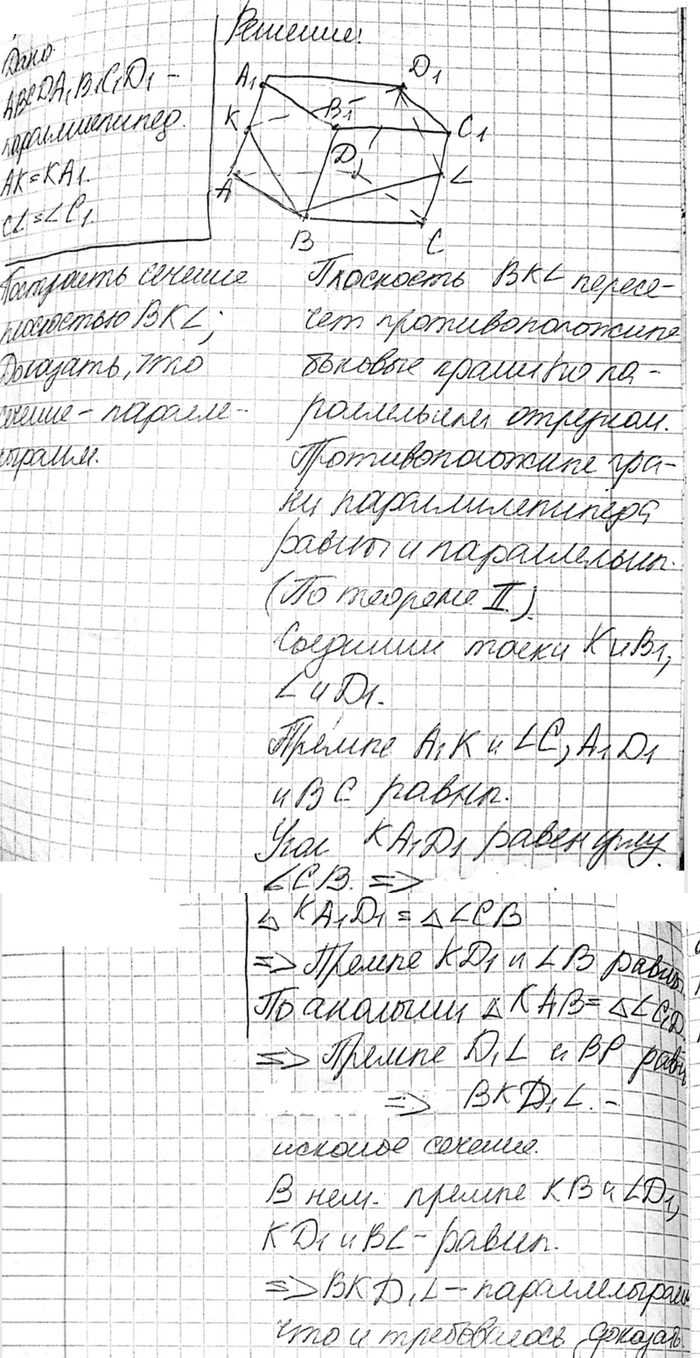 Дано
ABCDA₁B₁C₁D₁ –
параллепипед.
AK=KA₁.
CL=LC₁.
Построить сечение
плоскостью BKL;
Доказать, что
сечение – паралле-
лограмм.
Решение!
A₁
D₁
B₁
C₁
K
D
L
A
B
C
Плоскость BKL пересе-
чет противоположные
боковые грани по па-
раллельным отрезкам.
Противоположные гра-
ни параллилепипеда
равны и параллельны.
(По теореме II).
Соединим точки K и B₁,
L и D₁.
Прямые A₁K и LC, A₁D₁
и BC равны.
Угол KA₁D₁ равен углу
LCB. =>
△ KA₁D₁ = △LCB
=> Прямые KD₁ и LB равны
По аналогии △KAB = △LC₁D
=> Прямые D₁L и BP равны
=> BKD₁L. –
искомое сечение.
В нем. прямые KB и LD₁,
KD₁ и BL – равны.
=> BKD₁L – параллелограмм
что и требовалось доказать.